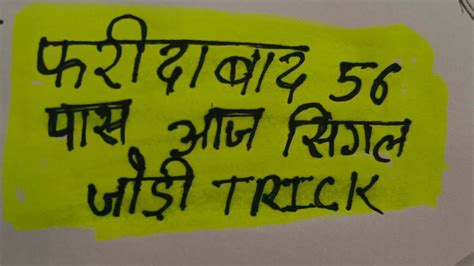 फरीदाबाद 56
पास आज सिगल
जोड़ी TRICK